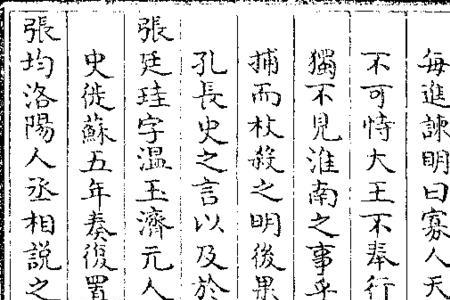 每進諫明曰寡人天
不可恃大王不奉行
獨不見淮南之事乎
捕而杖殺之明後果
孔長史之言以及於
張廷珪字溫玉濟元人
史徙蘇五年奏復置
張均洛陽人丞相説之